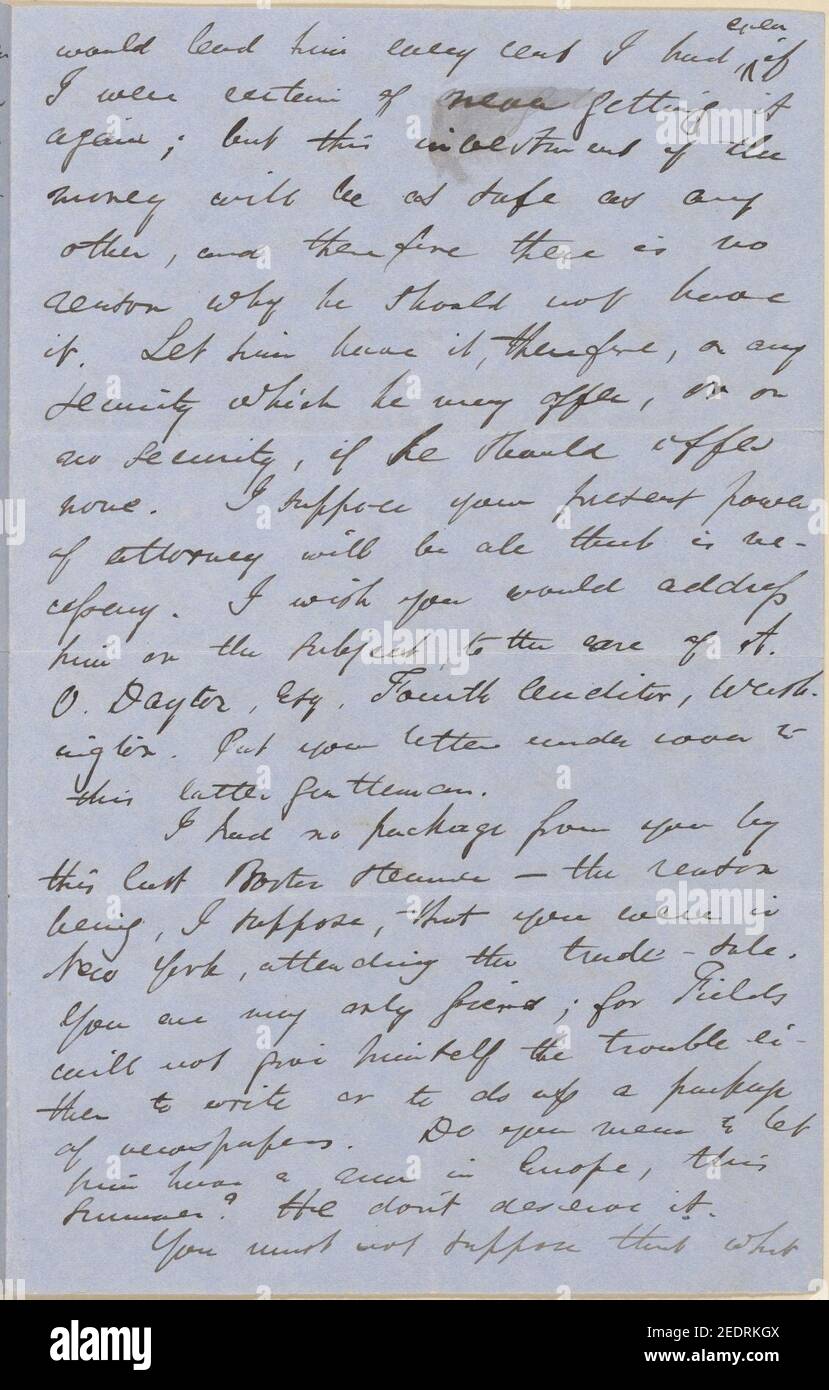 even
would lend him every cent I had, ^ if
I were certain of never getting it
again; but this investment of the
money will be as safe as any
other, and therefore there is no
reason why he should not have
it. Let him have it, therefore, on any
security which he may offer, or on
no security, if he should offer
none. I suppose your present power
of attorney will be all that is ne-
cessary. I wish you would address
him on the subject, to the care of A.
O. Dayton, Esq. Fourth Auditor, Wash-
ington. Put your letter under cover to
this latter gentleman.
I had no package from you by
this last Boston steamer — the reason
being, I suppose, that you were in
New York, attending the trade-sale.
You are my only friend; for Fields
will not give himself the trouble ei-
ther to write or to do up a package
of newspapers. Do you mean to let
him have a run in Europe, this
summer? He don't deserve it.
You must not suppose that what
alamy
Image ID: 2EDRKGX
www.alamy.com